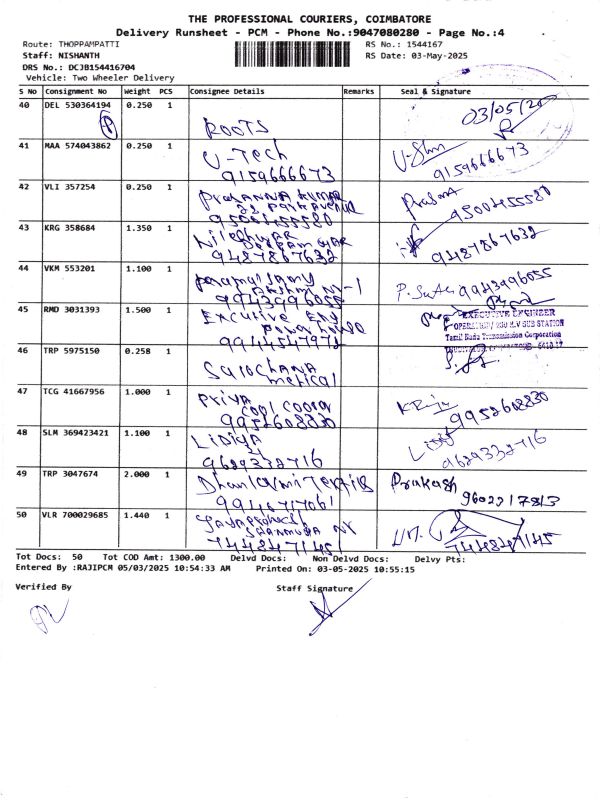 THE PROFESSIONAL COURIERS, COIMBATORE
Delivery Runsheet - PCM - Phone No.:9047080280 - Page No.:4
Route: THOPPAMPATTI
RS No.: 1544167
Staff: NISHANTH
RS Date: 03-May-2025
DRS No.: DCJB154416704
Vehicle: Two Wheeler Delivery
S No Consignment No Weight PCS Consignee Details Remarks Seal & Signature
40 DEL 530364194 0.250 1
P
ROOTS
03/05/20
41 MAA 574043862 0.250 1
U-Tech
9159666673
9159666673
42 VLI 357254 0.250 1
Prasanna Kumar
9500455580
9500455580
43 KRG 358684 1.350 1
9487867632
9487867632
44 VKM 553201 1.100 1
9943996055
9943996055
45 RMD 3031393 1.500 1
Excutive Eng
Power house
9914547972
EXECUTIVE ENGINEER
OPERATION / 230 K.V SUB STATION
Tamil Nadu Transmission Corporation
46 TRP 5975150 0.258 1
Sarochana
metical
47 TCG 41667956 1.000 1
Priya
9952608830
9952608830
48 SLM 369423421 1.100 1
Lidiya
9629332716
9629332716
49 TRP 3047674 2.000 1
Prakash
50 VLR 700029685 1.440 1
7448487145
Tot Docs: 50 Tot COD Amt: 1300.00 Delvd Docs: Non Delvd Docs: Delvy Pts:
Entered By :RAJIPCM 05/03/2025 10:54:33 AM Printed On: 03-05-2025 10:55:15
Verified By
Staff Signature